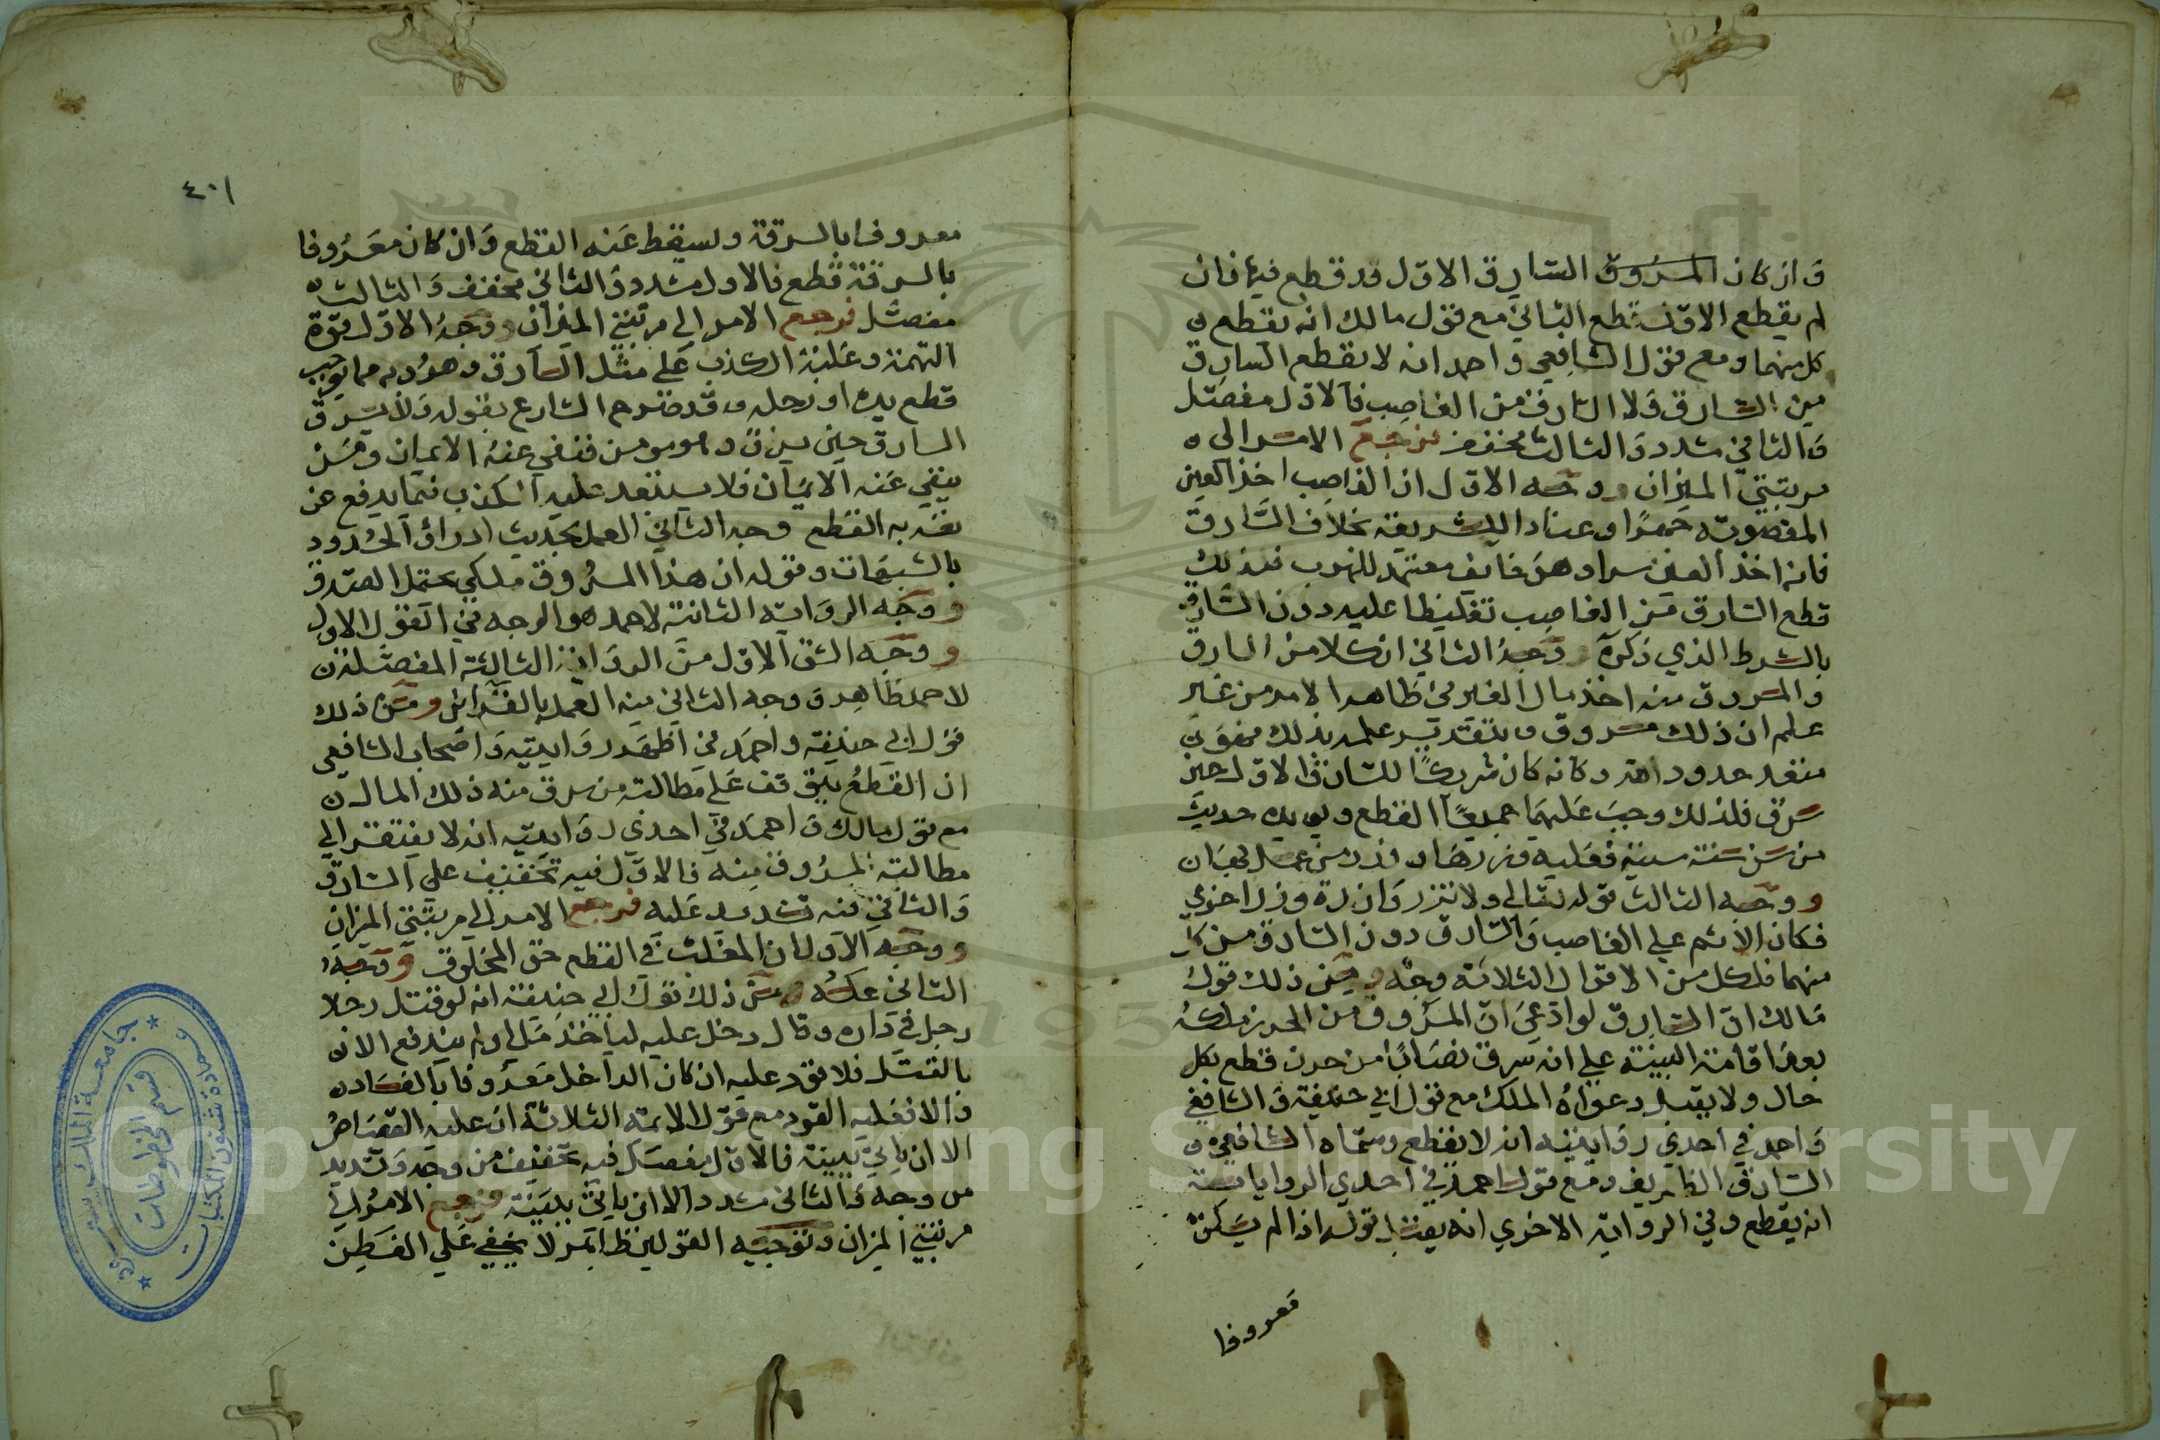 وان كان المسروق السارق الاول قد قطع فيها فان
لم يقطع الاول قطع الثاني مع قول مالك انه يقطع
كل منهما ومع قول الشافعي واحمد انه لا يقطع السارق
من السارق ولا السارق من الغاصب فالاول مفصل
والثاني مشدد والثالث مخفف فرجع الامر الى
مرتبتي الميزان ووجه الاول ان الغاصب اخذ العين
المغصوبة جهرا وعنادا للشريعة بخلاف السارق
فانه اخذ العين سرا وهو خائف معتمد للهرب فلذلك
قطع السارق من الغاصب تغليظا عليه دون السارق
بالشرط الذي ذكره ووجه الثاني ان كلا من السارق
والمسروق منه اخذ مال الغير في ظاهر الامر من غير
علم ان ذلك مسروق وبتقدير علمه بذلك فهو
متعد حدود الله وكانه كان شريكا للسارق الاول حين
سرق فلذلك وجب عليهما جميعا القطع ويويده حديث
من سن سنة سيئة فعليه وزرها ووزر من عمل بها ن
ووجه الثالث قوله تعالى ولا تزر وازرة وزر اخري
فكان الاثم علي الغاصب والسارق دون السارق من كل
منهما فلكل من الاقوال الثلاثة وجه ومن ذلك قول
مالك ان السارق لو ادعي ان المسروق من الحرز ملكه
بعد اقامة البينة علي انه سرق نصابا من حرز قطع بكل
حال ولا يقبل دعواه الملك مع قول ابي حنيفة والشافعي
واحمد في احدي روايتيه انه لا يقطع وسماه الشافعي
السارق الظريف ومع قول احمد في احدي الروايات
انه يقطع وفي الرواية الاخري انه يقبل قوله اذا لم يكن
معروفا
٤٠١
معروفا بالسرقة ويسقط عنه القطع وان كان معروفا
بالسرقة قطع فالاول مشدد والثاني مخفف والثالث
مفصل فرجع الامر الي مرتبتي الميزان ووجه الاول قوة
التهمة وغلبة الكذب علي مثل السارق وهروبه مما يوجب
قطع يده او رجله وقد صرح الشارع بقوله ولا يسرق
السارق حين يسرق وهو مومن فنفي عنه الايمان ومن
ينفي عنه الايمان فلا يستبعد عليه الكذب فيما يدفع عن
نفسه به القطع وجه الثاني العمل بحديث ادراؤا الحدود
بالشبهات وقوله ان هذا المسروق ملكي يحتمل الصدق
ووجه الرواية الثانية لاحمد هو الوجه في القول الاول
ووجه الشق الاول من الرواية الثالثة المفصلة
لاحمد ظاهر ووجه الثاني منه العمل بالقرائن ومن ذلك
قول ابي حنيفة واحمد في اظهر روايتيه واصحاب الشافعي
ان القطع يتوقف علي مطالبة من سرق منه ذلك المال
مع قول مالك واحمد في احدي روايتيه انه لا يفتقر الي
مطالبة المسروق منه فالاول فيه تخفيف علي السارق
والثاني فيه تشديد عليه فرجع الامر الي مرتبتي الميزان
ووجه الاول ان المغلب في القطع حق المخلوق ووجه
الثاني عكسه ومن ذلك قول ابي حنيفة انه لو قتل رجلا
رجل في داره وقال دخل عليه لياخذ مالي ولم يندفع الا
بالقتل فلا قود عليه ان كان الداخل معروفا بالفساد
والا فعليه القود مع قول الائمة الثلاثة ان عليه القصاص
الا ان ياتي ببينة فالاول مفصل فيه تخفيف من وجه وتشديد
من وجه والثاني مشدد الا ان ياتي ببينة فرجع الامر الي
مرتبتي الميزان وتوجيه القولين ظاهر لا يخفي علي الفطن
جامعة الملك سعود
عمادة شئون المكتبات
قسم المخطوطات
Copyright © King Saud University
1957